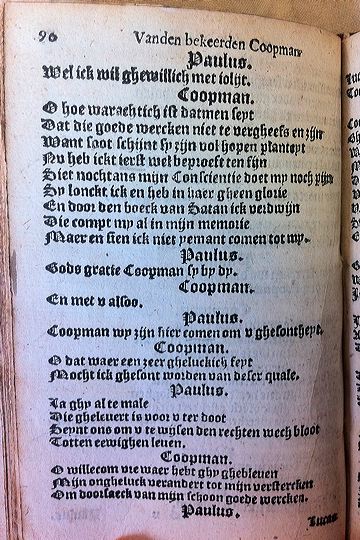 90 Vanden bekeerden Coopman.
Paulus.
Wel ick wil ghewillich met iolijt.
Coopman.
O hoe warachtich ist datmen seyt
Dat die goede wercken niet te vergheefs en zijn
Want soot schijnt sy zijn vol hopen planteyt
Nu heb ickt ierst wel beproeft ten fijn
Siet nochtans mijn Conscientie doet my noch pijn
Sy lonckt ick en heb in haer gheen glorie
En door den boeck van Satan ick verdwijn
Die compt my al in mijn memorie
Maer en sien ick niet yemant comen tot my.
Paulus.
Gods gratie Coopman sy by dy.
Coopman.
En met v alsoo.
Paulus.
Coopman wy zijn hier comen om v ghesontheyt.
Coopman.
O dat waer een zeer gheluckich feyt
Mocht ick ghesont worden van deser quale.
Paulus.
Ja ghy al te male
Die ghelevert is voor v ter doot
Seynt ons om v te wijsen den rechten wech bloot
Totten eewighen leven.
Coopman.
O willecom vie waer hebt ghy ghebleven
Mijn ongheluck verandert tot mijn verstercken
Om doorsaeck van mijn schoon goede wercken.
Paulus.
Lucas